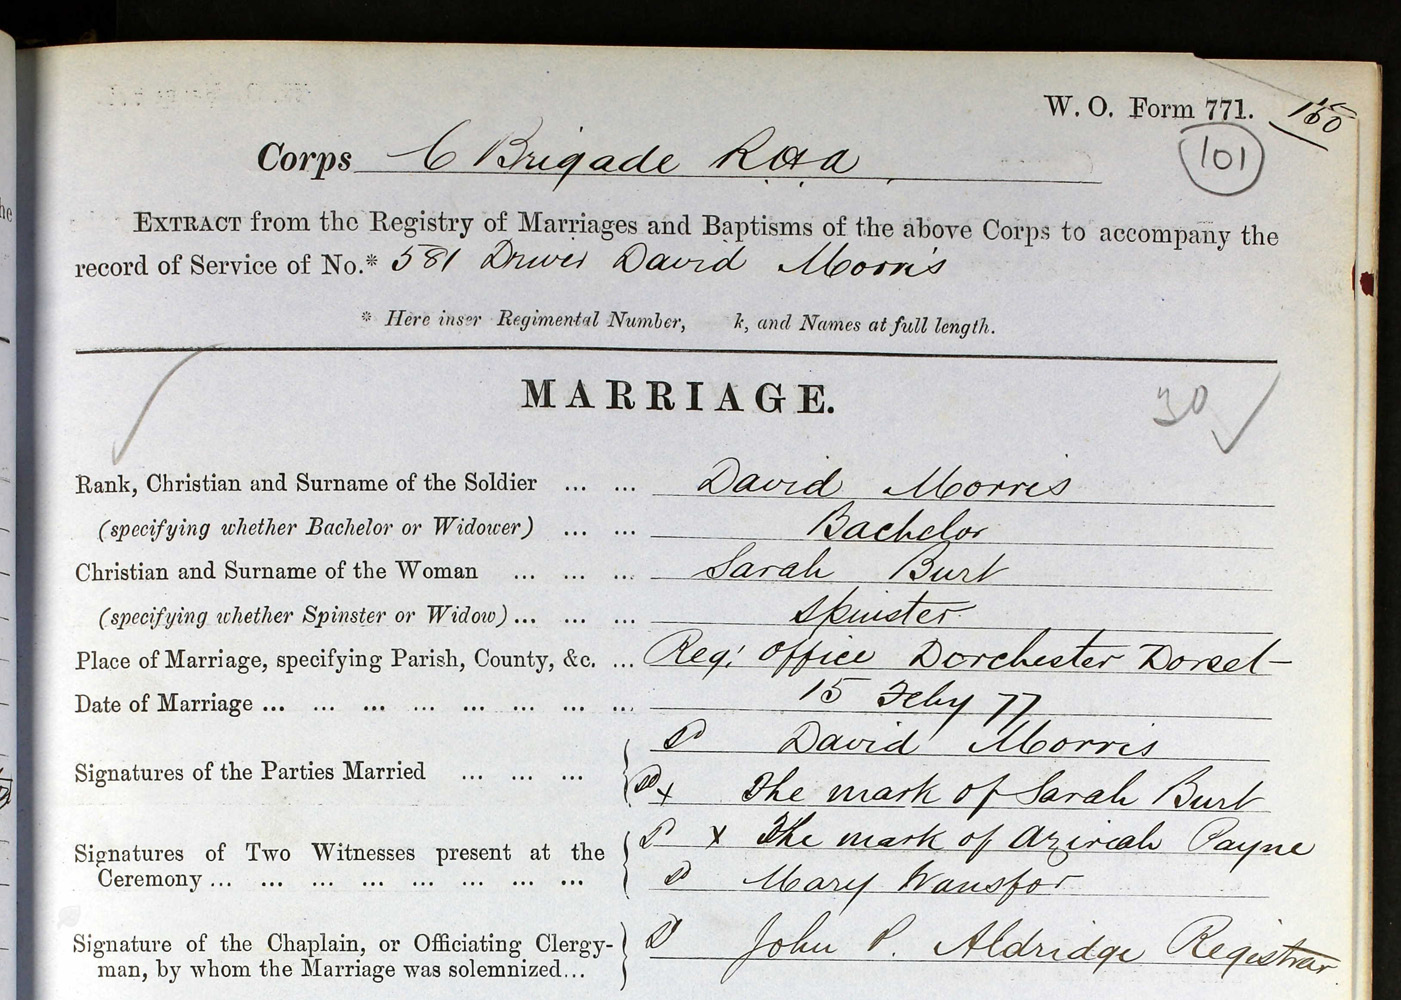 W. O. Form 771. 150
Corps C Brigade RHA
101
EXTRACT from the Registry of Marriages and Baptisms of the above Corps to accompany the
record of Service of No.* 581 Driver David Morris
* Here inser Regimental Number, k, and Names at full length.
MARRIAGE. 30
Rank, Christian and Surname of the Soldier ... ... David Morris
(specifying whether Bachelor or Widower) ... ... Bachelor
Christian and Surname of the Woman ... ... ... Sarah Burt
(specifying whether Spinster or Widow) ... ... ... Spinster
Place of Marriage, specifying Parish, County, &c. ... Reg. Office Dorchester Dorset
Date of Marriage ... ... ... ... ... ... ... ... 15 Feby 77
David Morris
Signatures of the Parties Married ... ... ...
x The mark of Sarah Burt
x The mark of Azireah Payne
Signatures of Two Witnesses present at the
Ceremony ... ... ... ... ... ... ... ... Mary
Signature of the Chaplain, or Officiating Clergy- John P. Aldridge Registrar
man, by whom the Marriage was solemnized ...